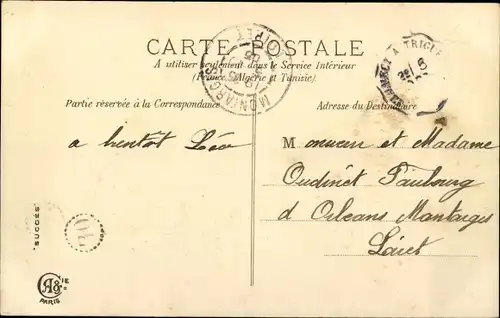 CARTE POSTALE
A utiliser seulement dans le Service Intérieur
(France, Algérie et Tunisie).
Partie réservée à la Correspondance
Adresse du Destinataire
MONTARGIS
LOIRET
CLAMECY A TRIGUÈRES
a bientot Léa
Monsieur et Madame
Oudinet Faubourg
d Orléans Montargis
Loiret
"SUCCÈS"
CA & CIE
PARIS